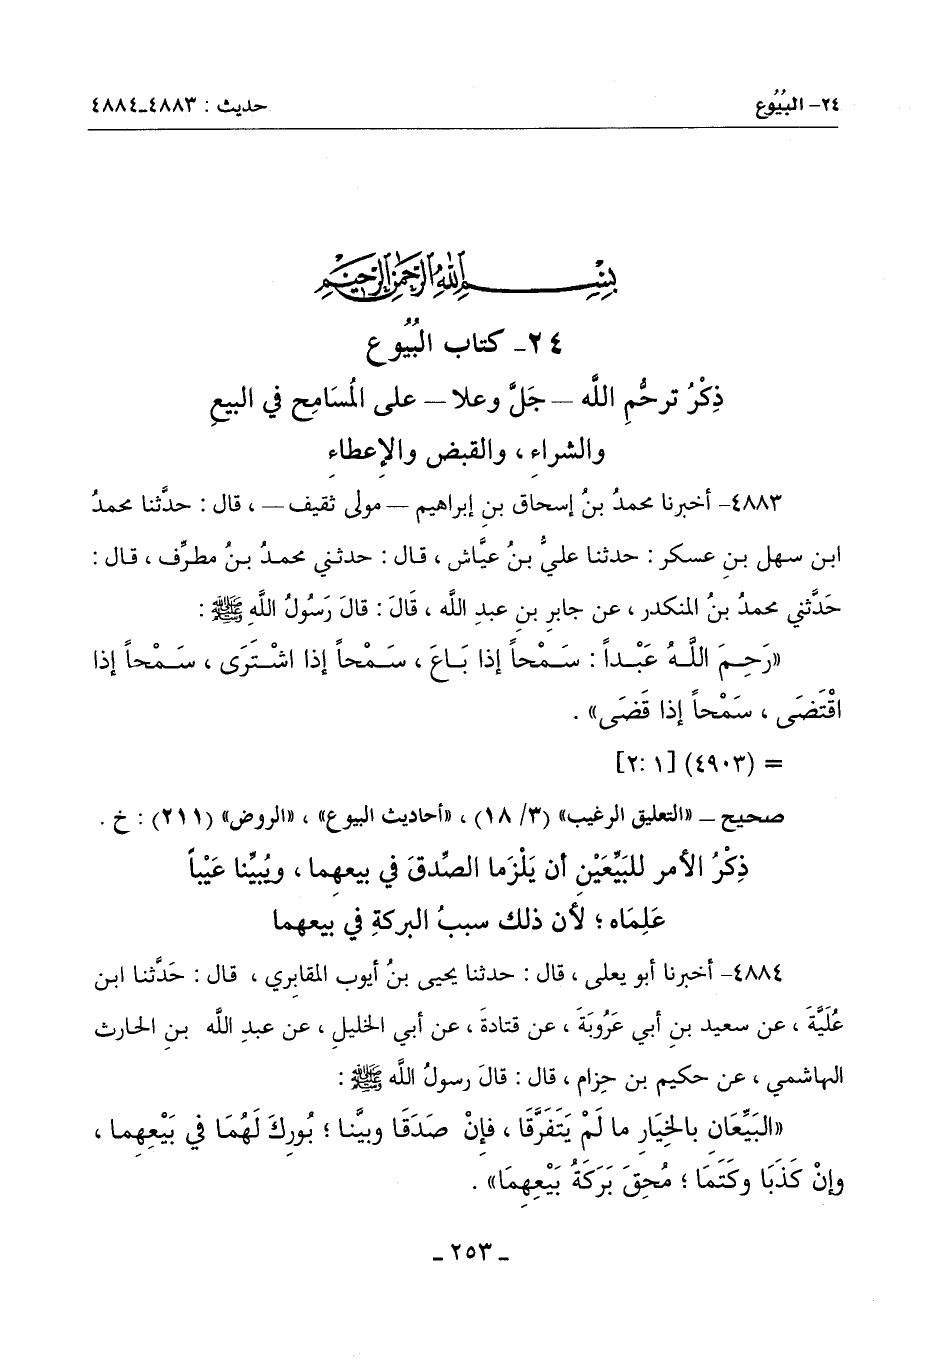 ٢٤- البُيُوع
حديث : ٤٨٨٣-٤٨٨٤
بِسْمِ اللهِ الرَّحْمٰنِ الرَّحِيْمِ
٢٤- كتاب البُيُوع
ذِكْرُ ترحُّمِ اللَّه – جَلَّ وعلا – على المُسَامِحِ في البيعِ
والشراءِ ، والقبضِ والإعطاءِ
٤٨٨٣- أخبرنا محمدُ بنُ إسحاق بنِ إبراهيم – مولى ثقيف – ، قال : حدَّثنا محمدُ
ابن سهل بنِ عسكر : حدثنا عليُّ بنُ عيَّاش ، قال : حدثني محمدُ بنُ مطرِّف ، قال :
حَدَّثني محمدُ بنُ المنكدر ، عن جابرِ بنِ عبدِ الله ، قَالَ : قالَ رَسُولُ اللَّهِ ﷺ :
«رَحِمَ اللَّهُ عَبْداً : سَمْحاً إذا بَاعَ ، سَمْحاً إذا اشْتَرَى ، سَمْحاً إذا
اقْتَضَى ، سَمْحاً إذا قَضَى» .
= (٤٩٠٣) [١ :٢]
صحيح – «التعليق الرغيب» (٣/ ١٨) ، «أحاديث البيوع» ، «الروض» (٢١١) : خ .
ذِكْرُ الأمرِ للبَيِّعَيْنِ أن يَلْزَما الصِّدقَ في بيعهِما ، ويُبيِّنا عَيْباً
عَلِمَاه ؛ لأن ذلك سببُ البركةِ في بيعهما
٤٨٨٤- أخبرنا أبو يعلى ، قال : حدثنا يحيى بنُ أيوب المقابري ، قال : حَدَّثنا ابن
عُلَيَّةَ ، عن سعيد بنِ أبي عَرُوبَةَ ، عن قتادةَ ، عن أبي الخليلِ ، عن عبدِ اللَّه بنِ الحارث
الهاشمي ، عن حكيم بن حِزام ، قال : قالَ رسولُ الله ﷺ :
«البَيِّعَانِ بالخِيَارِ ما لَمْ يَتَفَرَّقَا ، فإنْ صَدَقَا وبيَّنا ؛ بُورِكَ لَهُمَا في بَيْعِهِما ،
وإنْ كَذَبَا وكَتَمَا ؛ مُحِقَ بَرَكَةُ بَيْعِهِمَا» .
- ٢٥٣ -